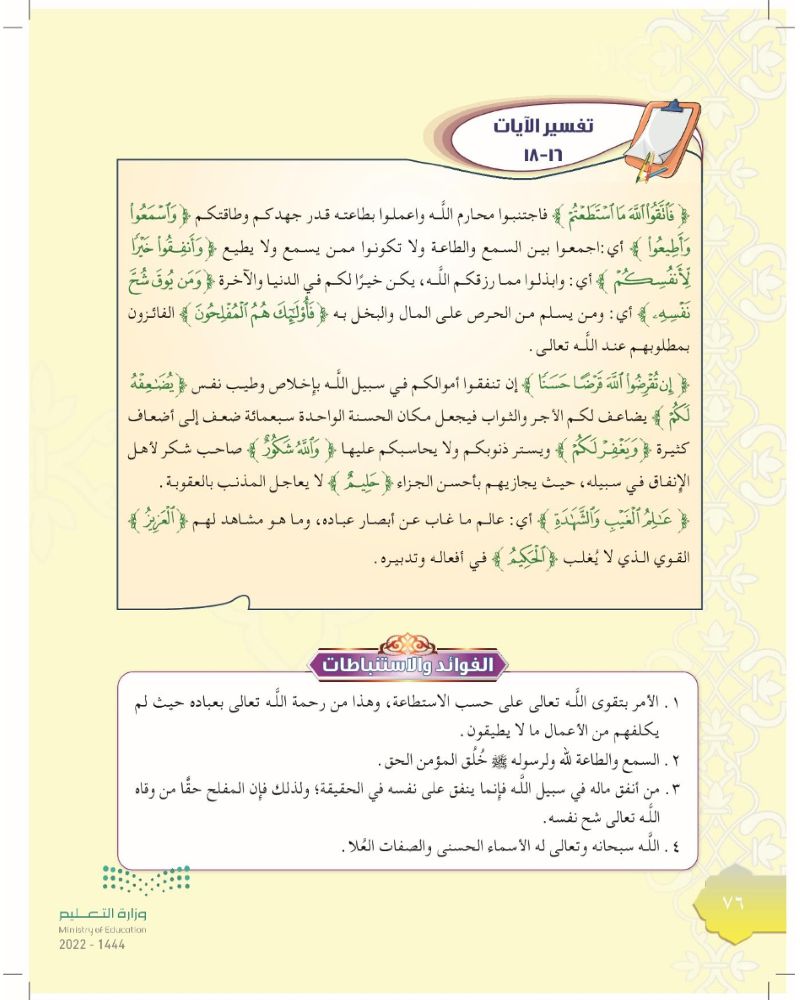 تفسير الآيات
١٦-١٨
﴿ فَٱتَّقُوا۟ ٱللَّهَ مَا ٱسْتَطَعْتُمْ ﴾ فاجتنبوا محارم اللَّه واعملوا بطاعته قدر جهدكم وطاقتكم ﴿ وَٱسْمَعُوا۟
وَأَطِيعُوا۟ ﴾ أي:اجمعوا بين السمع والطاعة ولا تكونوا ممن يسمع ولا يطيع ﴿ وَأَنفِقُوا۟ خَيْرًا
لِّأَنفُسِكُمْ ﴾ أي: وابذلوا مما رزقكم اللَّه، يكن خيرًا لكم في الدنيا والآخرة ﴿ وَمَن يُوقَ شُحَّ
نَفْسِهِۦ ﴾ أي: ومن يسلم من الحرص على المال والبخل به ﴿ فَأُو۟لَٰٓئِكَ هُمُ ٱلْمُفْلِحُونَ ﴾ الفائزون
بمطلوبهم عند اللَّه تعالى.
﴿ إِن تُقْرِضُوا۟ ٱللَّهَ قَرْضًا حَسَنًا ﴾ إن تنفقوا أموالكم في سبيل اللَّه بإخلاص وطيب نفس ﴿ يُضَٰعِفْهُ
لَكُمْ ﴾ يضاعف لكم الأجر والثواب فيجعل مكان الحسنة الواحدة سبعمائة ضعف إلى أضعاف
كثيرة ﴿ وَيَغْفِرْ لَكُمْ ﴾ ويستر ذنوبكم ولا يحاسبكم عليها ﴿ وَٱللَّهُ شَكُورٌ ﴾ صاحب شكر لأهل
الإنفاق في سبيله، حيث يجازيهم بأحسن الجزاء ﴿ حَلِيمٌ ﴾ لا يعاجل المذنب بالعقوبة.
﴿ عَٰلِمُ ٱلْغَيْبِ وَٱلشَّهَٰدَةِ ﴾ أي: عالم ما غاب عن أبصار عباده، وما هو مشاهد لهم ﴿ ٱلْعَزِيزُ ﴾
القوي الذي لا يُغلب ﴿ ٱلْحَكِيمُ ﴾ في أفعاله وتدبيره.
الفوائد والاستنباطات
١. الأمر بتقوى اللَّه تعالى على حسب الاستطاعة، وهذا من رحمة اللَّه تعالى بعباده حيث لم
يكلفهم من الأعمال ما لا يطيقون.
٢. السمع والطاعة لله ولرسوله ﷺ خُلُق المؤمن الحق.
٣. من أنفق ماله في سبيل اللَّه فإنما ينفق على نفسه في الحقيقة؛ ولذلك فإن المفلح حقًّا من وقاه
اللَّه تعالى شح نفسه.
٤. اللَّه سبحانه وتعالى له الأسماء الحسنى والصفات العُلا.
٧٦
وزارة التعليم
Ministry of Education
2022 - 1444